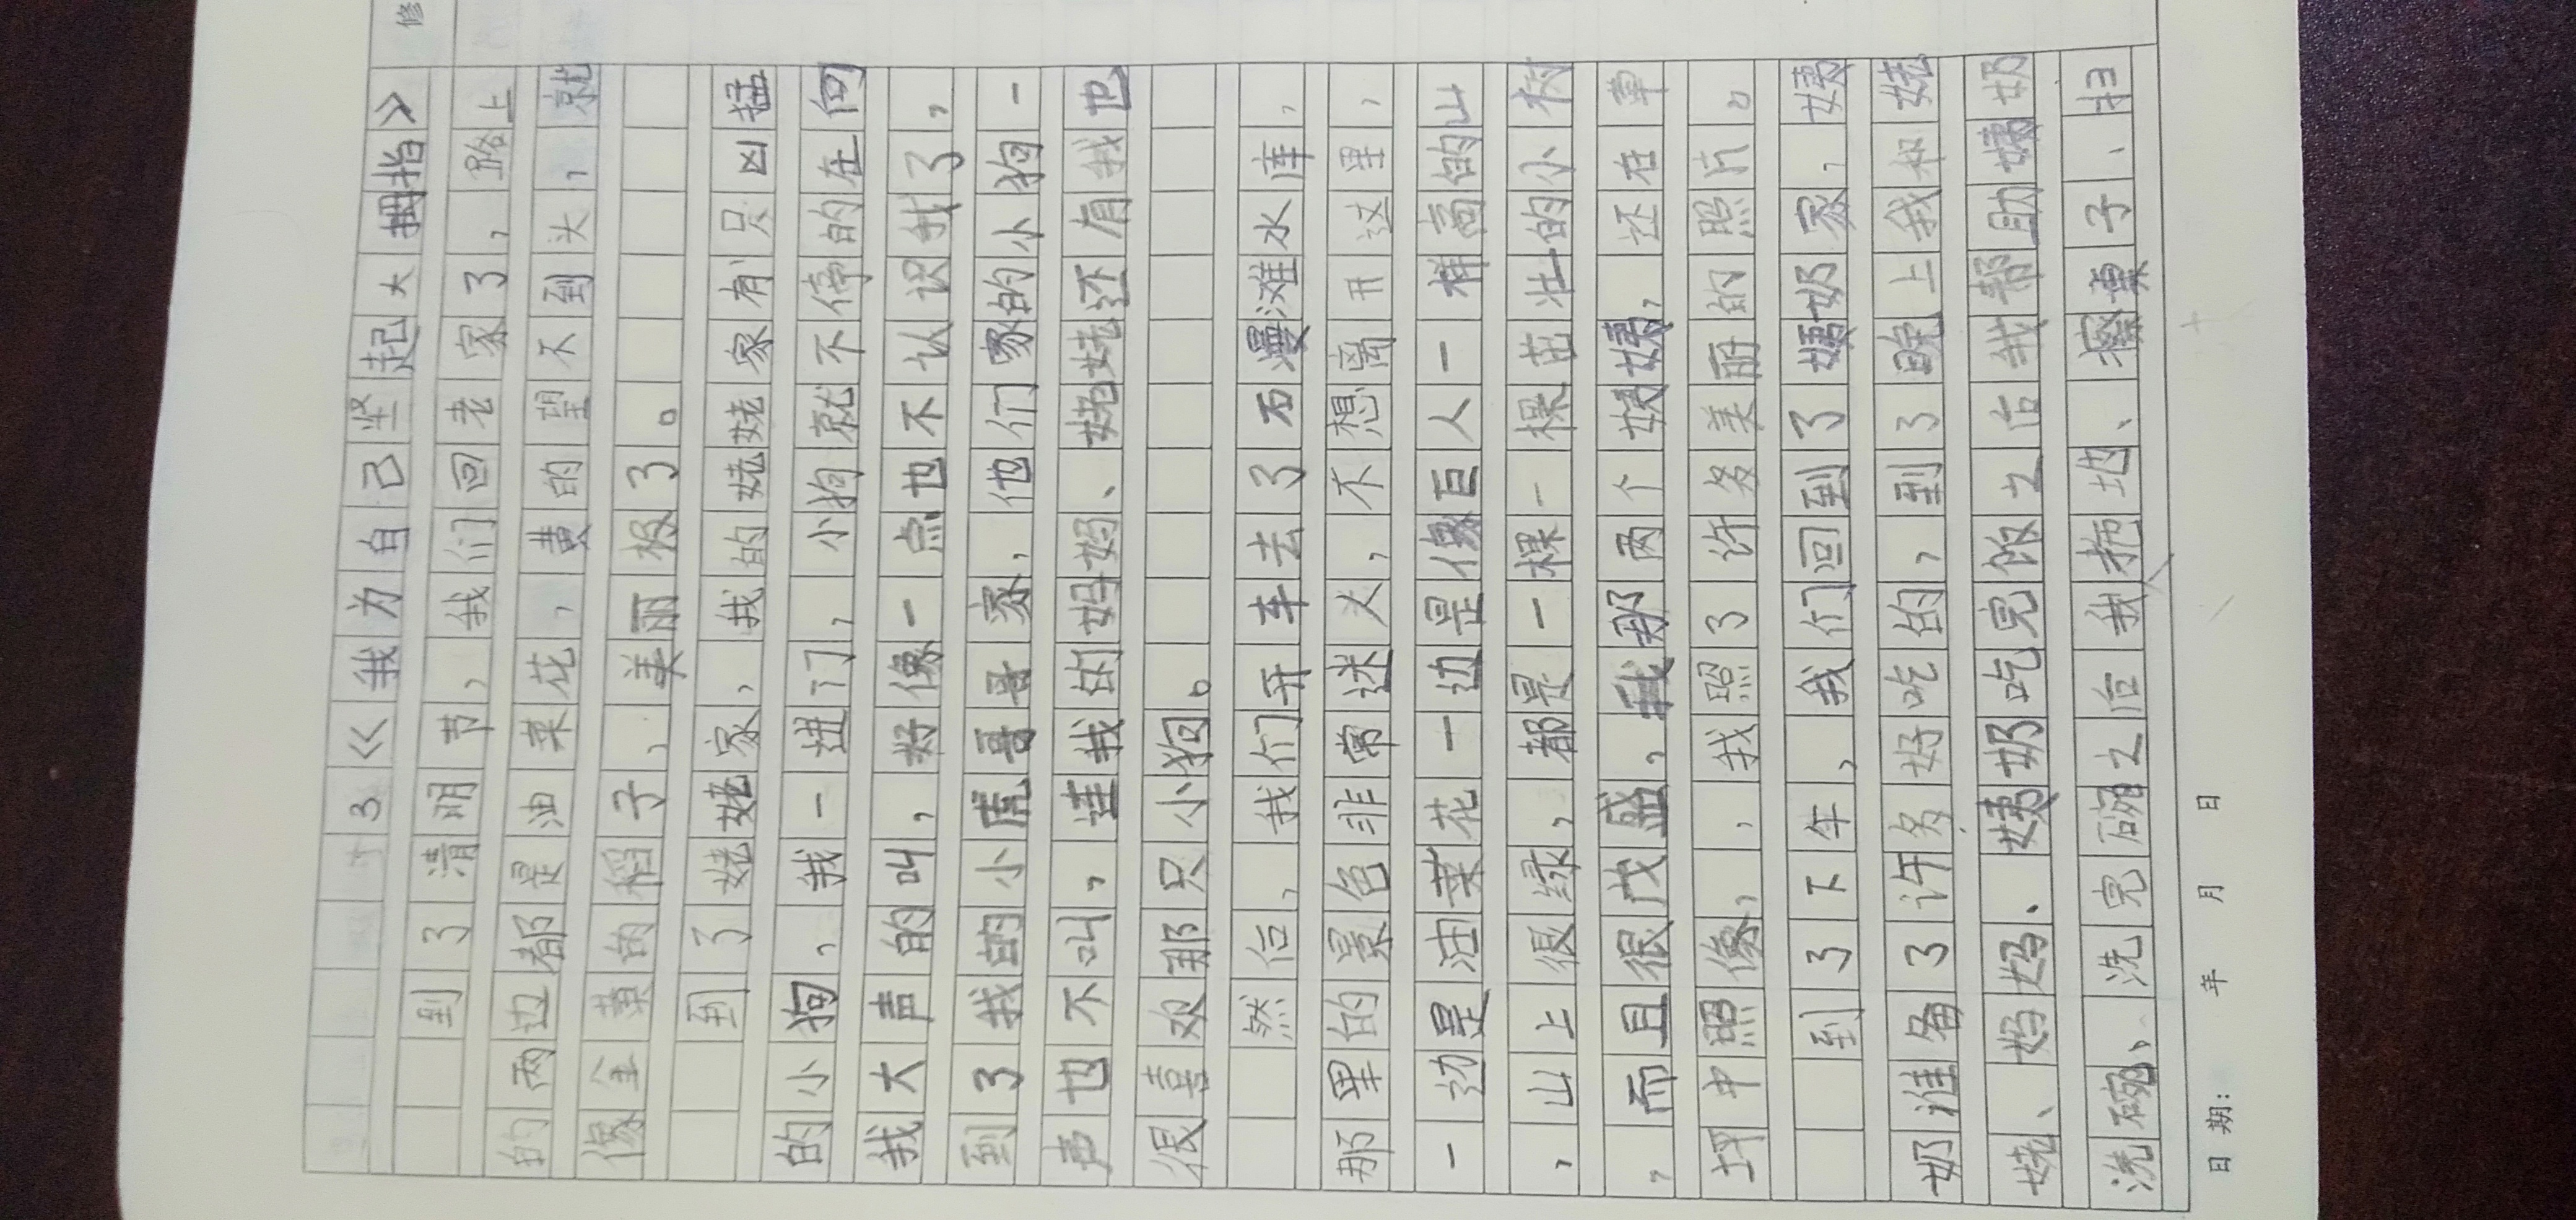 修
3《我为自己坚起大拇指》
到了清明节，我们回老家了，路上
的两边都是油菜花，黄的望不到头，就
像金黄的稻子，美丽极了。
到了姥姥家，我的姥姥家有只凶猛
的小狗，我一进门，小狗就不停的在向
我大声的叫，好像一点也不认识我了，
到了我的小虎哥哥家，他们家的小狗一
声也不叫，连我的妈妈、姥姥还有我也
很喜欢那只小狗。
然后，我们开车去了石漫滩水库，
那里的景色非常迷人，不想离开这里，
一边是油菜花一边是像巨人一样高的山
，山上很绿，都是一棵一棵茁壮的小树
，而且很茂盛，我那两个姨姨，还在草
坪中照像，，我照了许多美丽的照片。
到了下午，我们回到了姨奶家，姨
奶准备了许多好吃的，到了晚上我和姥
姥、妈妈、姨奶吃完饭之后我帮助姨奶
洗碗、洗完碗之后我拖地、擦桌子、扫
日期： 年 月 日